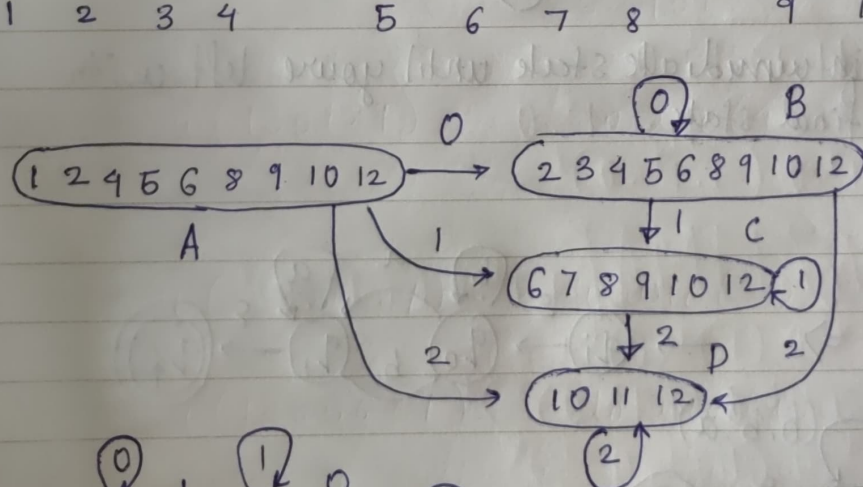 1 2 3 4 5 6 7 8 9
0 0 B
1 2 4 5 6 8 9 10 12 2 3 4 5 6 8 9 10 12
A 1 1 C
6 7 8 9 10 12 1
2 2 D 2
10 11 12
0 1 2